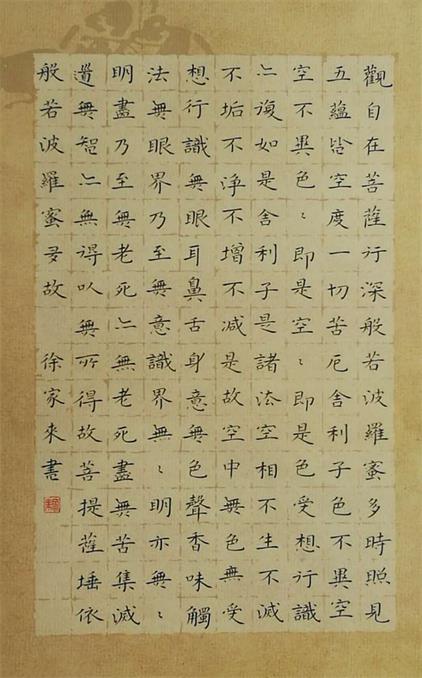 觀自在菩薩行深般若波羅蜜多時照見
五蘊皆空度一切苦厄舍利子色不異空
空不異色〻即是空〻即是色受想行識
亦復如是舍利子是諸法空相不生不滅
不垢不淨不增不減是故空中無色無受
想行識無眼耳鼻舌身意無色聲香味觸
法無眼界乃至無意識界無〻明亦無〻
明盡乃至無老死亦無老死盡無苦集滅
道無智亦無得以無所得故菩提薩埵依
般若波羅蜜多故 徐家來書